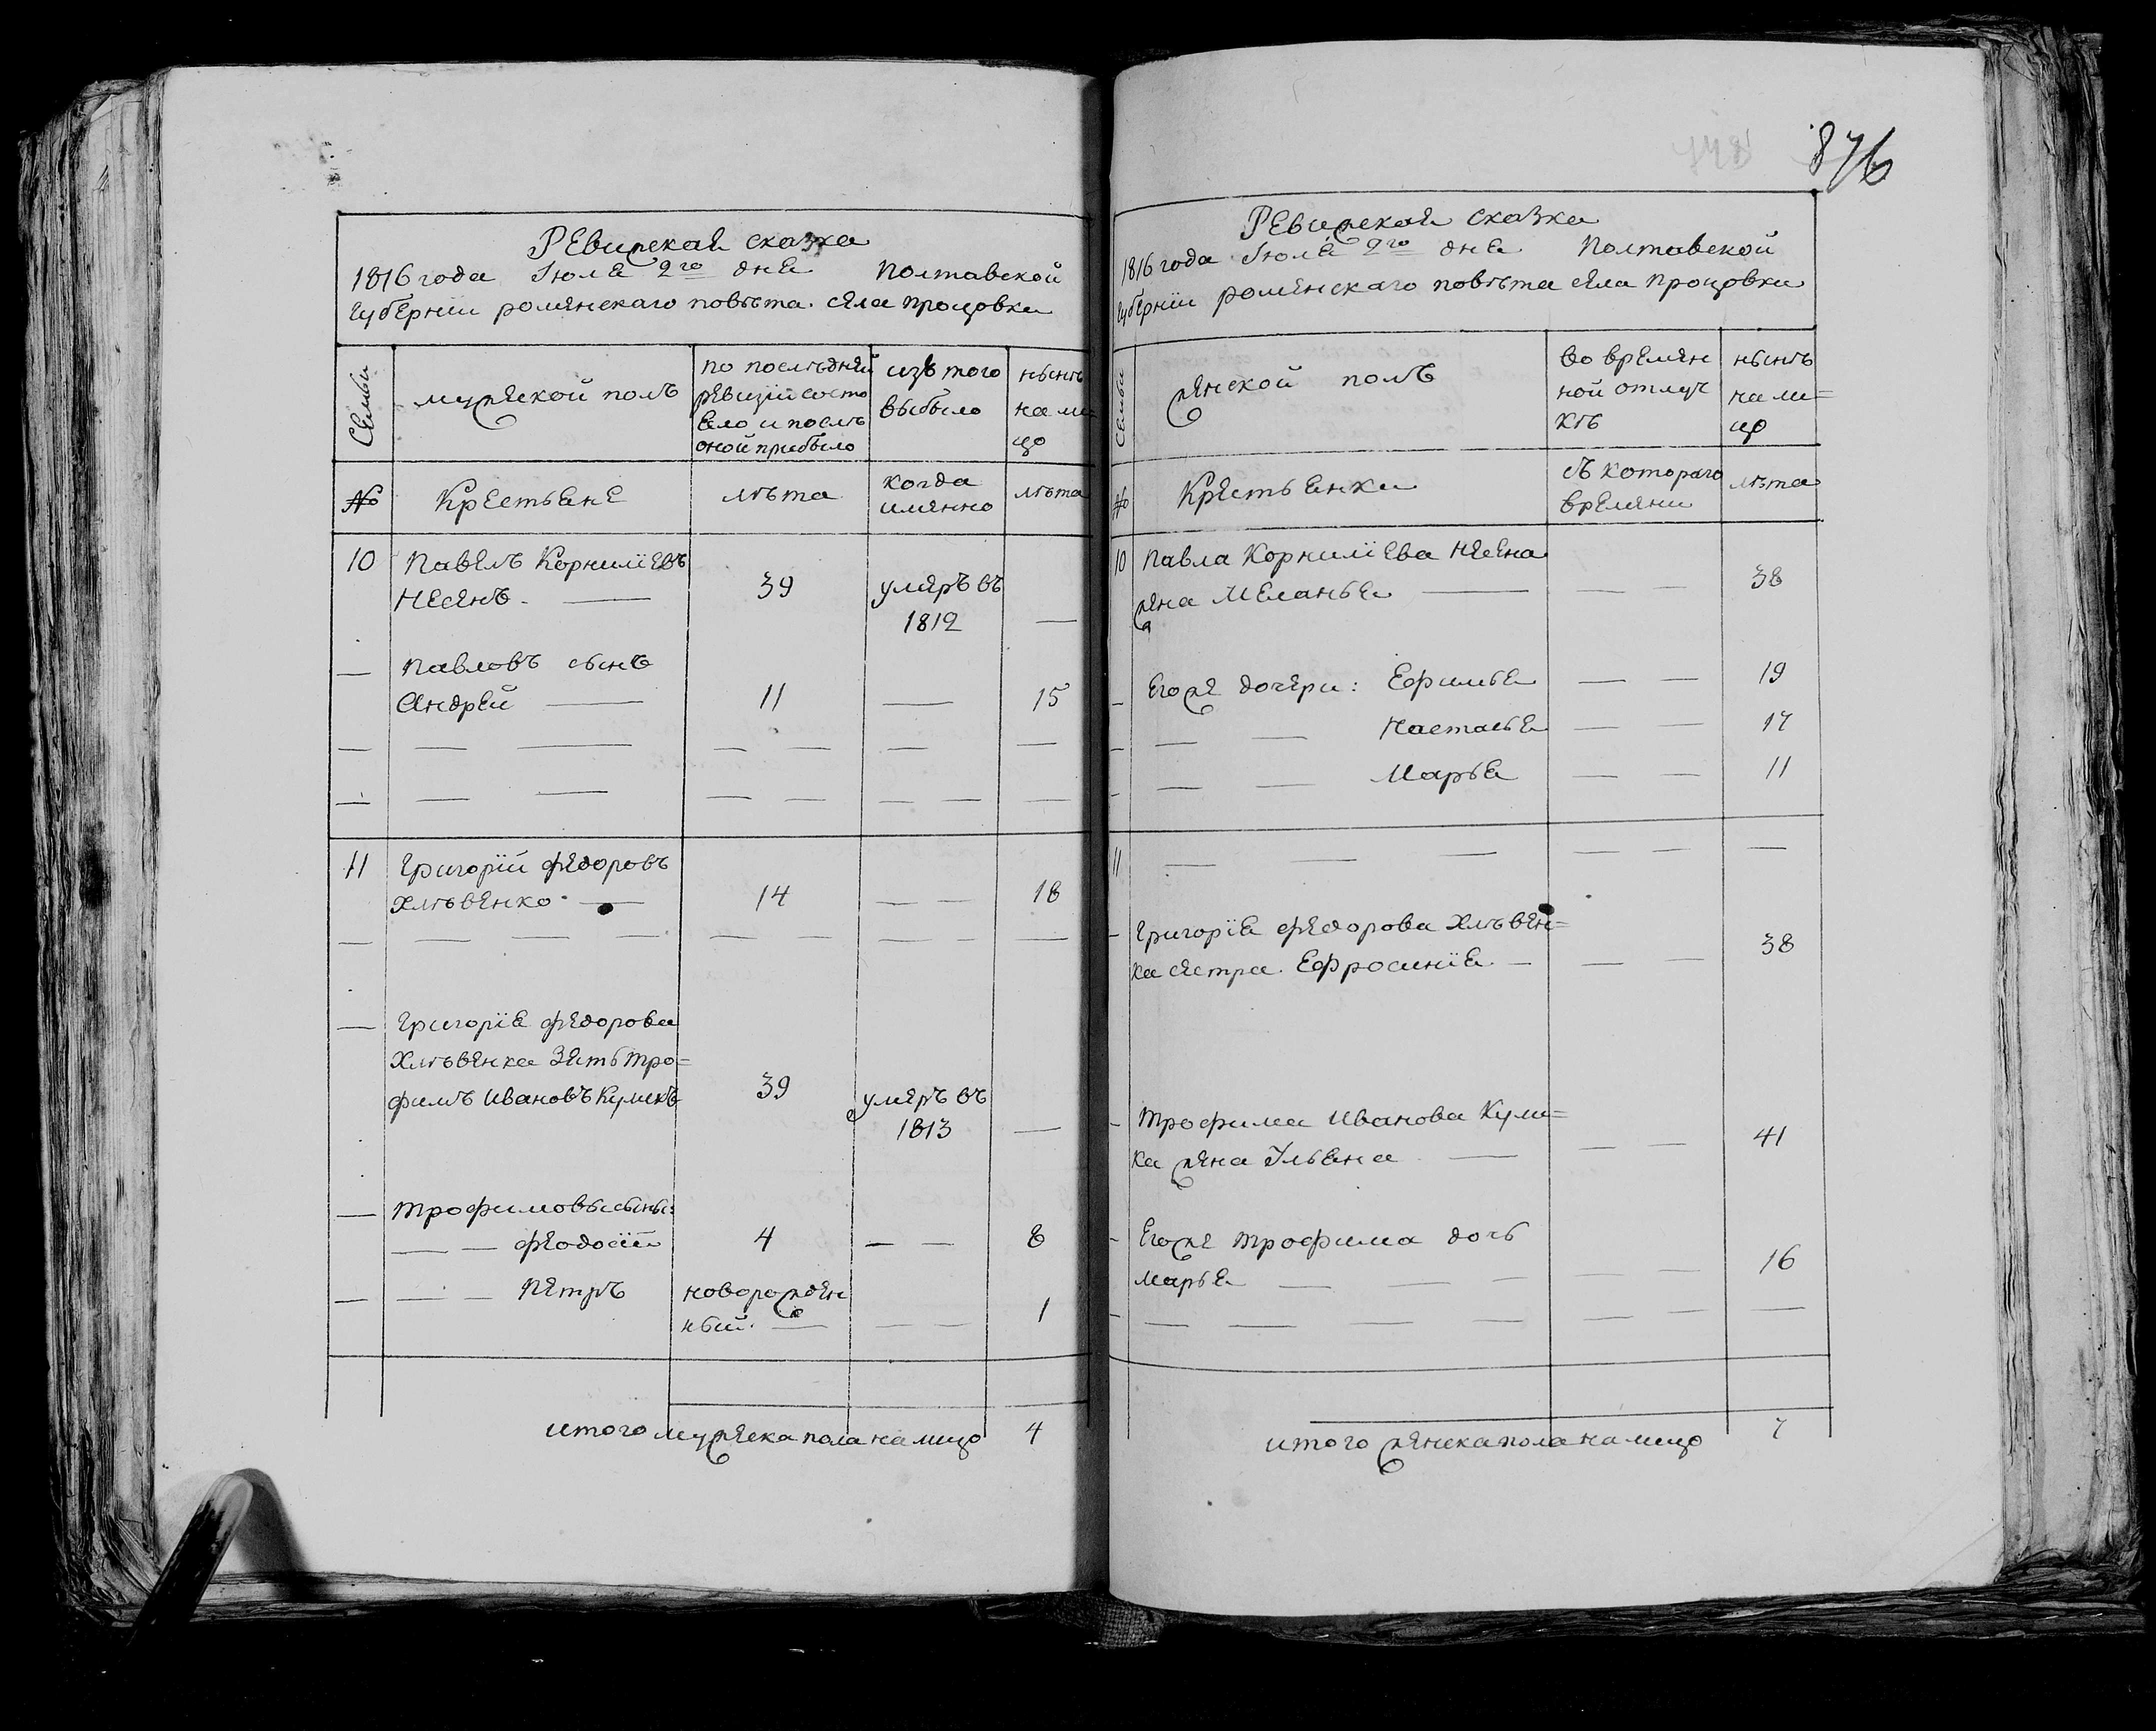 876
Ревижская сказка
1816 года Іюля 2го дня Полтавской
губерніи роменскаго повѣта села Процовки
Семьи
мужеской полъ
по послѣдней
ревизіи состо
яло и послѣ
оной прибыло
изъ того
выбыло
нынѣ
на ли=
цо
№
Крестьяне
лѣта
когда
именно
лѣта
10 Павелъ Корнилїевъ
Несенъ. 39 умеръ въ
1812
Павловъ сынъ
Андрей 11 15
11 Григорїй федоровъ
Хлѣвенко 14 18
Григорїя федорова
Хлѣвенка зять тро=
фимъ Ивановъ Куликъ 39 умеръ въ
1813
Трофимовы сыны:
феодосїй 4 8
Петръ новорожден
ный. 1
итого мужеска пола на лицо 4
Ревижская сказка
1816 года Іюля 2го дня Полтавской
губерніи роменскаго повѣта села Процовки
Семьи
женской полъ
Во времян
ной отлуч
кѣ
нынѣ
на ли=
цо
№
Крестьянки
съ котораго
времяни
лѣта
10 Павла Корнилїева Несена
жена Меланья 38
Его же дочери: Ефимья 19
Настасья 17
Марья 11
11
Григорїя федорова Хлѣвен=
ка сестра Ефросинїя 38
Трофима Иванова Кули=
ка жена Ульяна 41
Его же трофима дочь
марья 16
итого женска пола на лицо 7